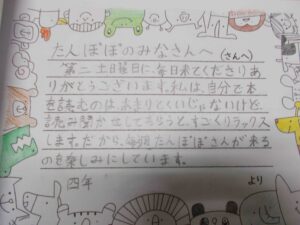 たんぽぽのみなさんへ(さんへ)
第二土曜日に、毎日来てくださりあ
りがとうございます。私は、自分で本
を読むのは、あまりとくいじゃないけど、
読み聞かせしてもらうと、すごくリラックス
します。だから、毎週たんぽぽさんが来る
のを楽しみにしています。
四年 より